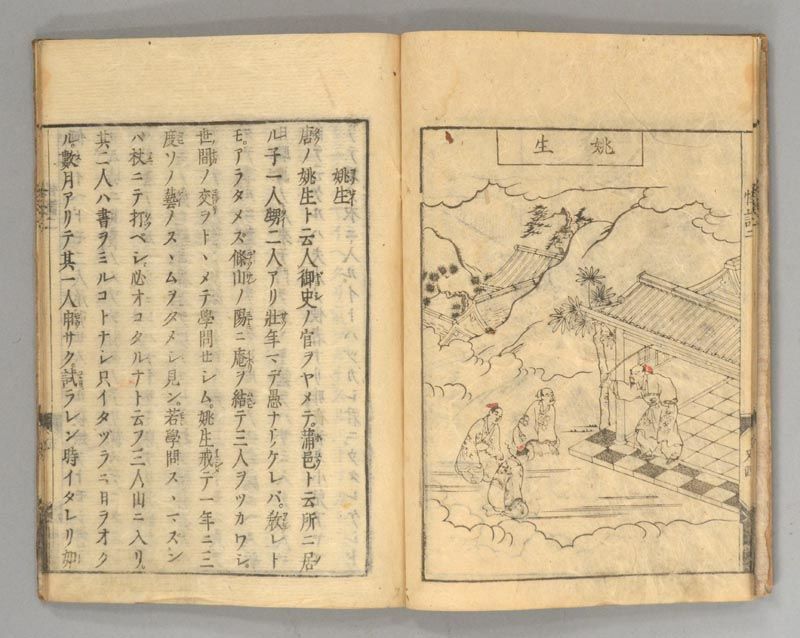 姚生
怪談二
姚生
唐ノ姚生ト云人御史ノ官ヲヤメテ。蒲邑ト云所ニ居
ル子一人甥二人アリ壯年マデ愚ナリケレバ。敎レト
モ。アラタメズ條山ノ陽ニ庵ヲ結テ三人ヲツカワシ。
世間ノ交ヲトヽメテ學問セシム。姚生戒テ一年ニ三
度ソノ藝ノスヽムヲタメシ見ン。若學問スヽマズン
バ杖ニテ打ベシ。必オコタルナト云ヲ三人山ニ入リ。
其二人ハ書ヲミルコトナシ只イタヅラニ日ヲオク
ル。數月アリテ其一人申サク。試ラレン時イタレリ如